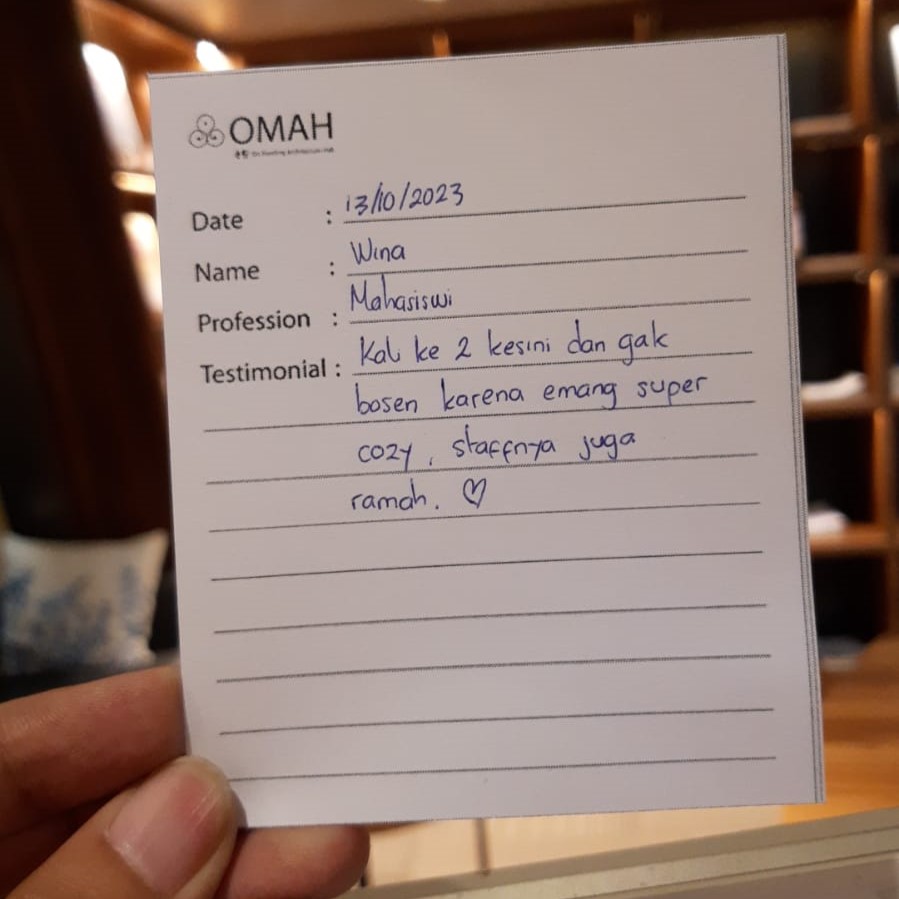 OMAH
Date : 13/10/2023
Name : Wina
Profession : Mahasiswi
Testimonial : Kali ke 2 kesini dan gak
bosen karena emang super
cozy, staffnya juga
ramah. ♡